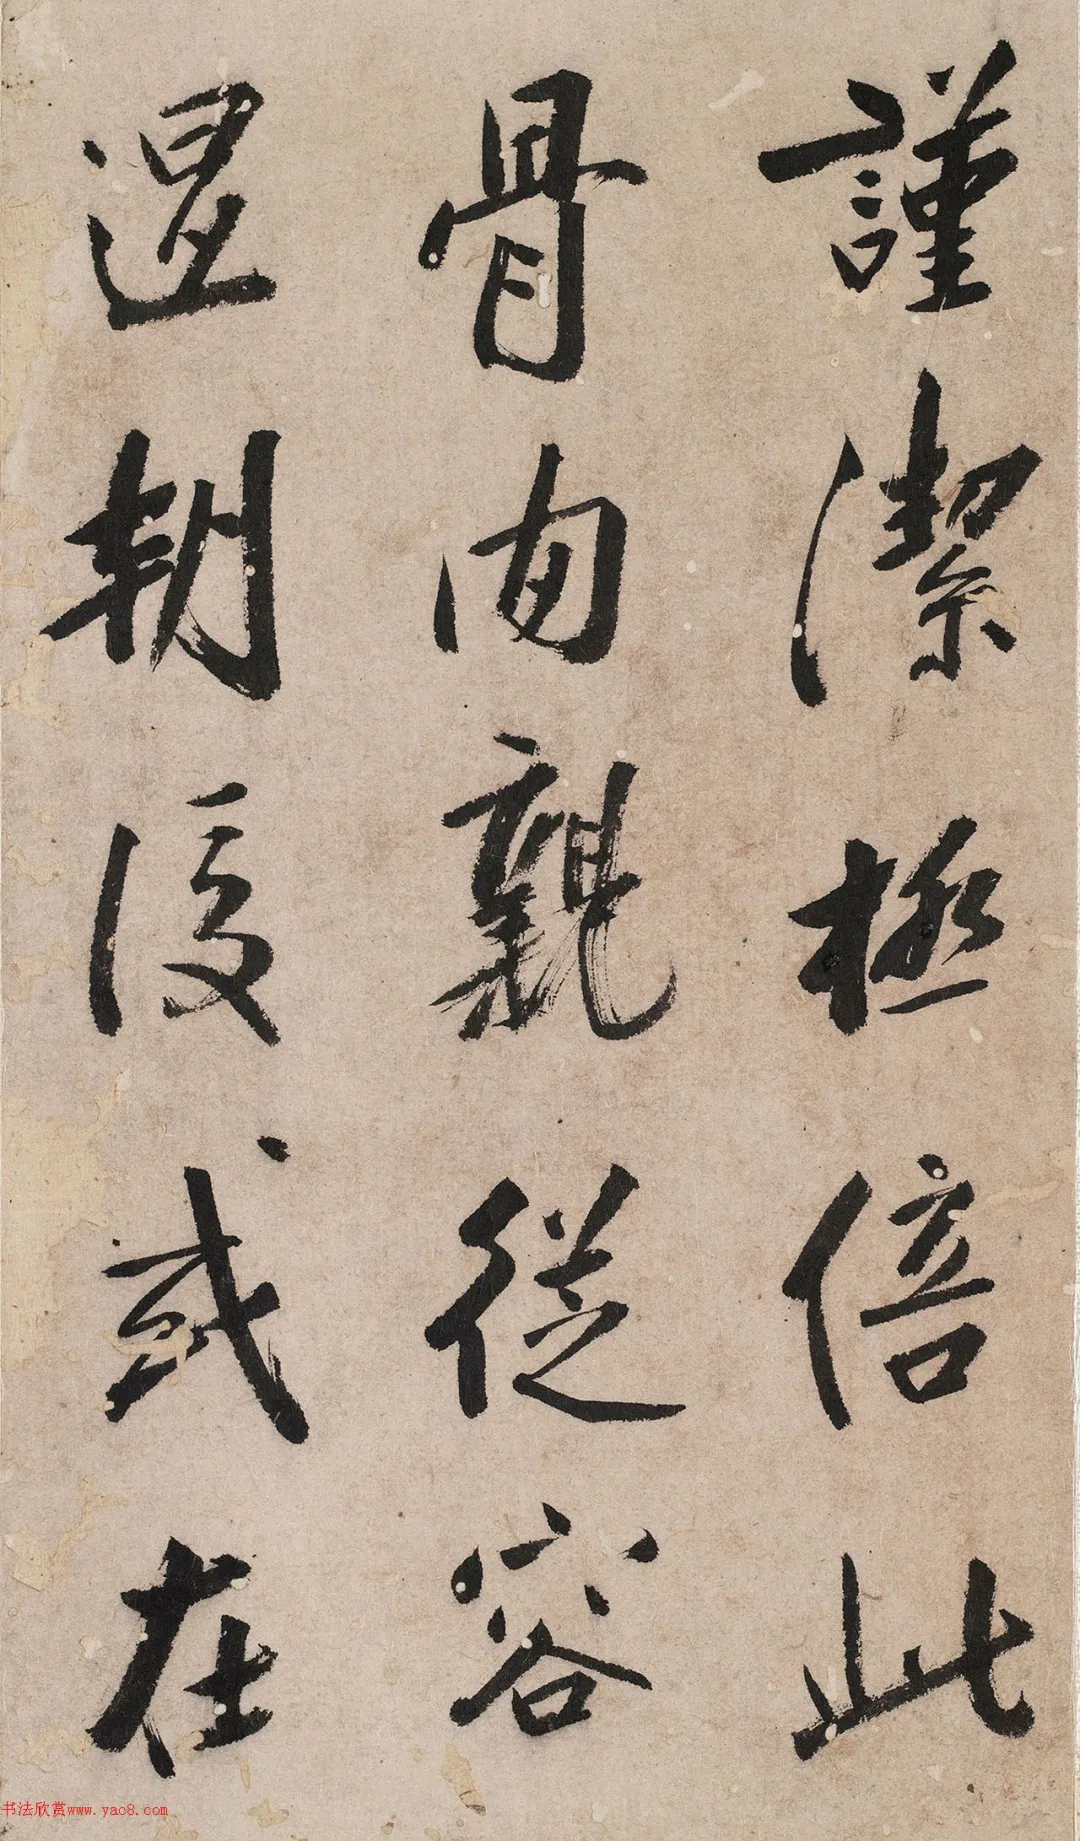 謹潔極倍此
骨肉親從容
退朝後或在
书法欣赏www.yac8.com